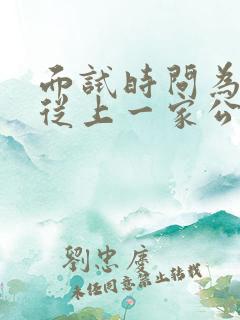 而試時問為
從上一家公
劉忠慶
未任同意禁止轉載